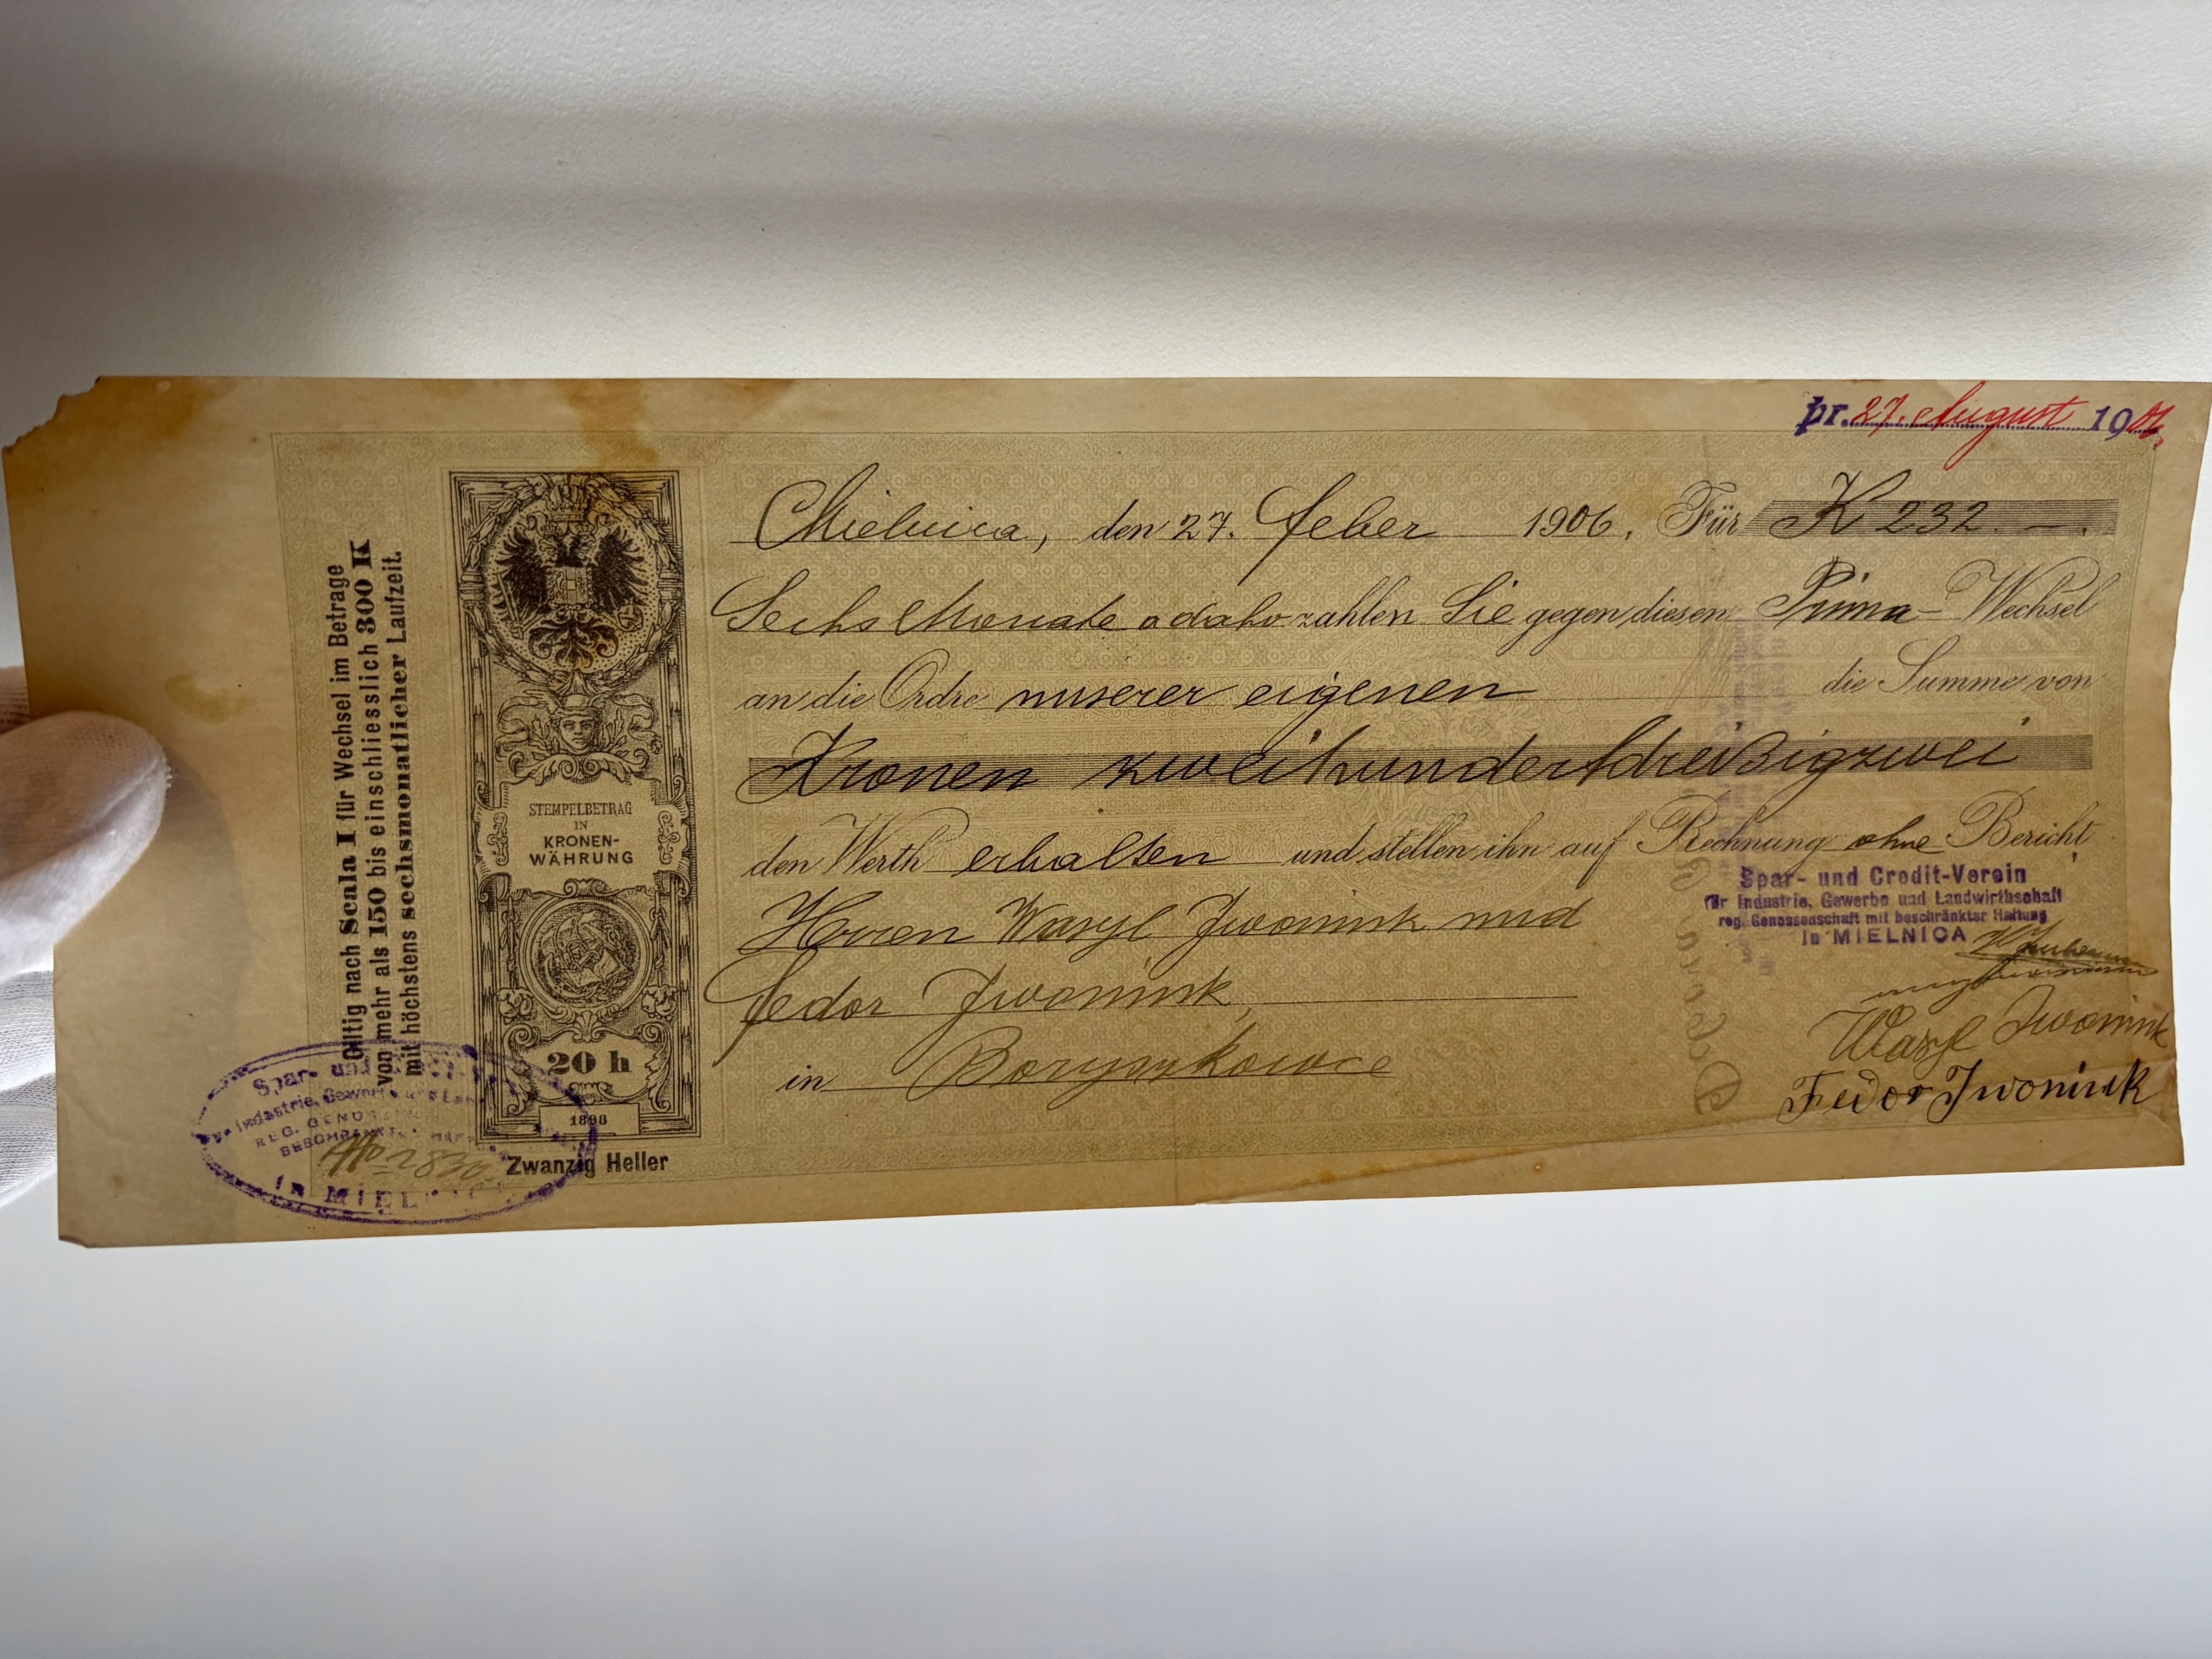 pr. 27. August 1906.
Mielnica, den 27. Feber 1906. Für K 232 –.
Sechs Monate a dato zahlen Sie gegen diesen Prima-Wechsel
an die Ordre unserer eigenen die Summe von
Kronen zweihundertdreißigzwei
den Werth erhalten und stellen ihn auf Rechnung ohne Bericht
Herren Wasyl Iwoniuk und
Fedor Iwoniuk,
in Boryszkowce
Spar- und Credit-Verein
für Industrie, Gewerbe und Landwirthschaft
reg. Genossenschaft mit beschränkter Haftung
in MIELNICA
Wasyl Iwoniuk
Fedor Iwoniuk
Giltig nach Scala I für Wechsel im Betrage
von mehr als 150 bis einschliesslich 300 K
mit höchstens sechsmonatlicher Laufzeit.
STEMPELBETRAG
IN
KRONEN-
WÄHRUNG
20 h
1898
Zwanzig Heller
Spar- und
Industrie, Gewerbe
REG. GENO
BESCHRÄNKT
No 2830
in MIEL